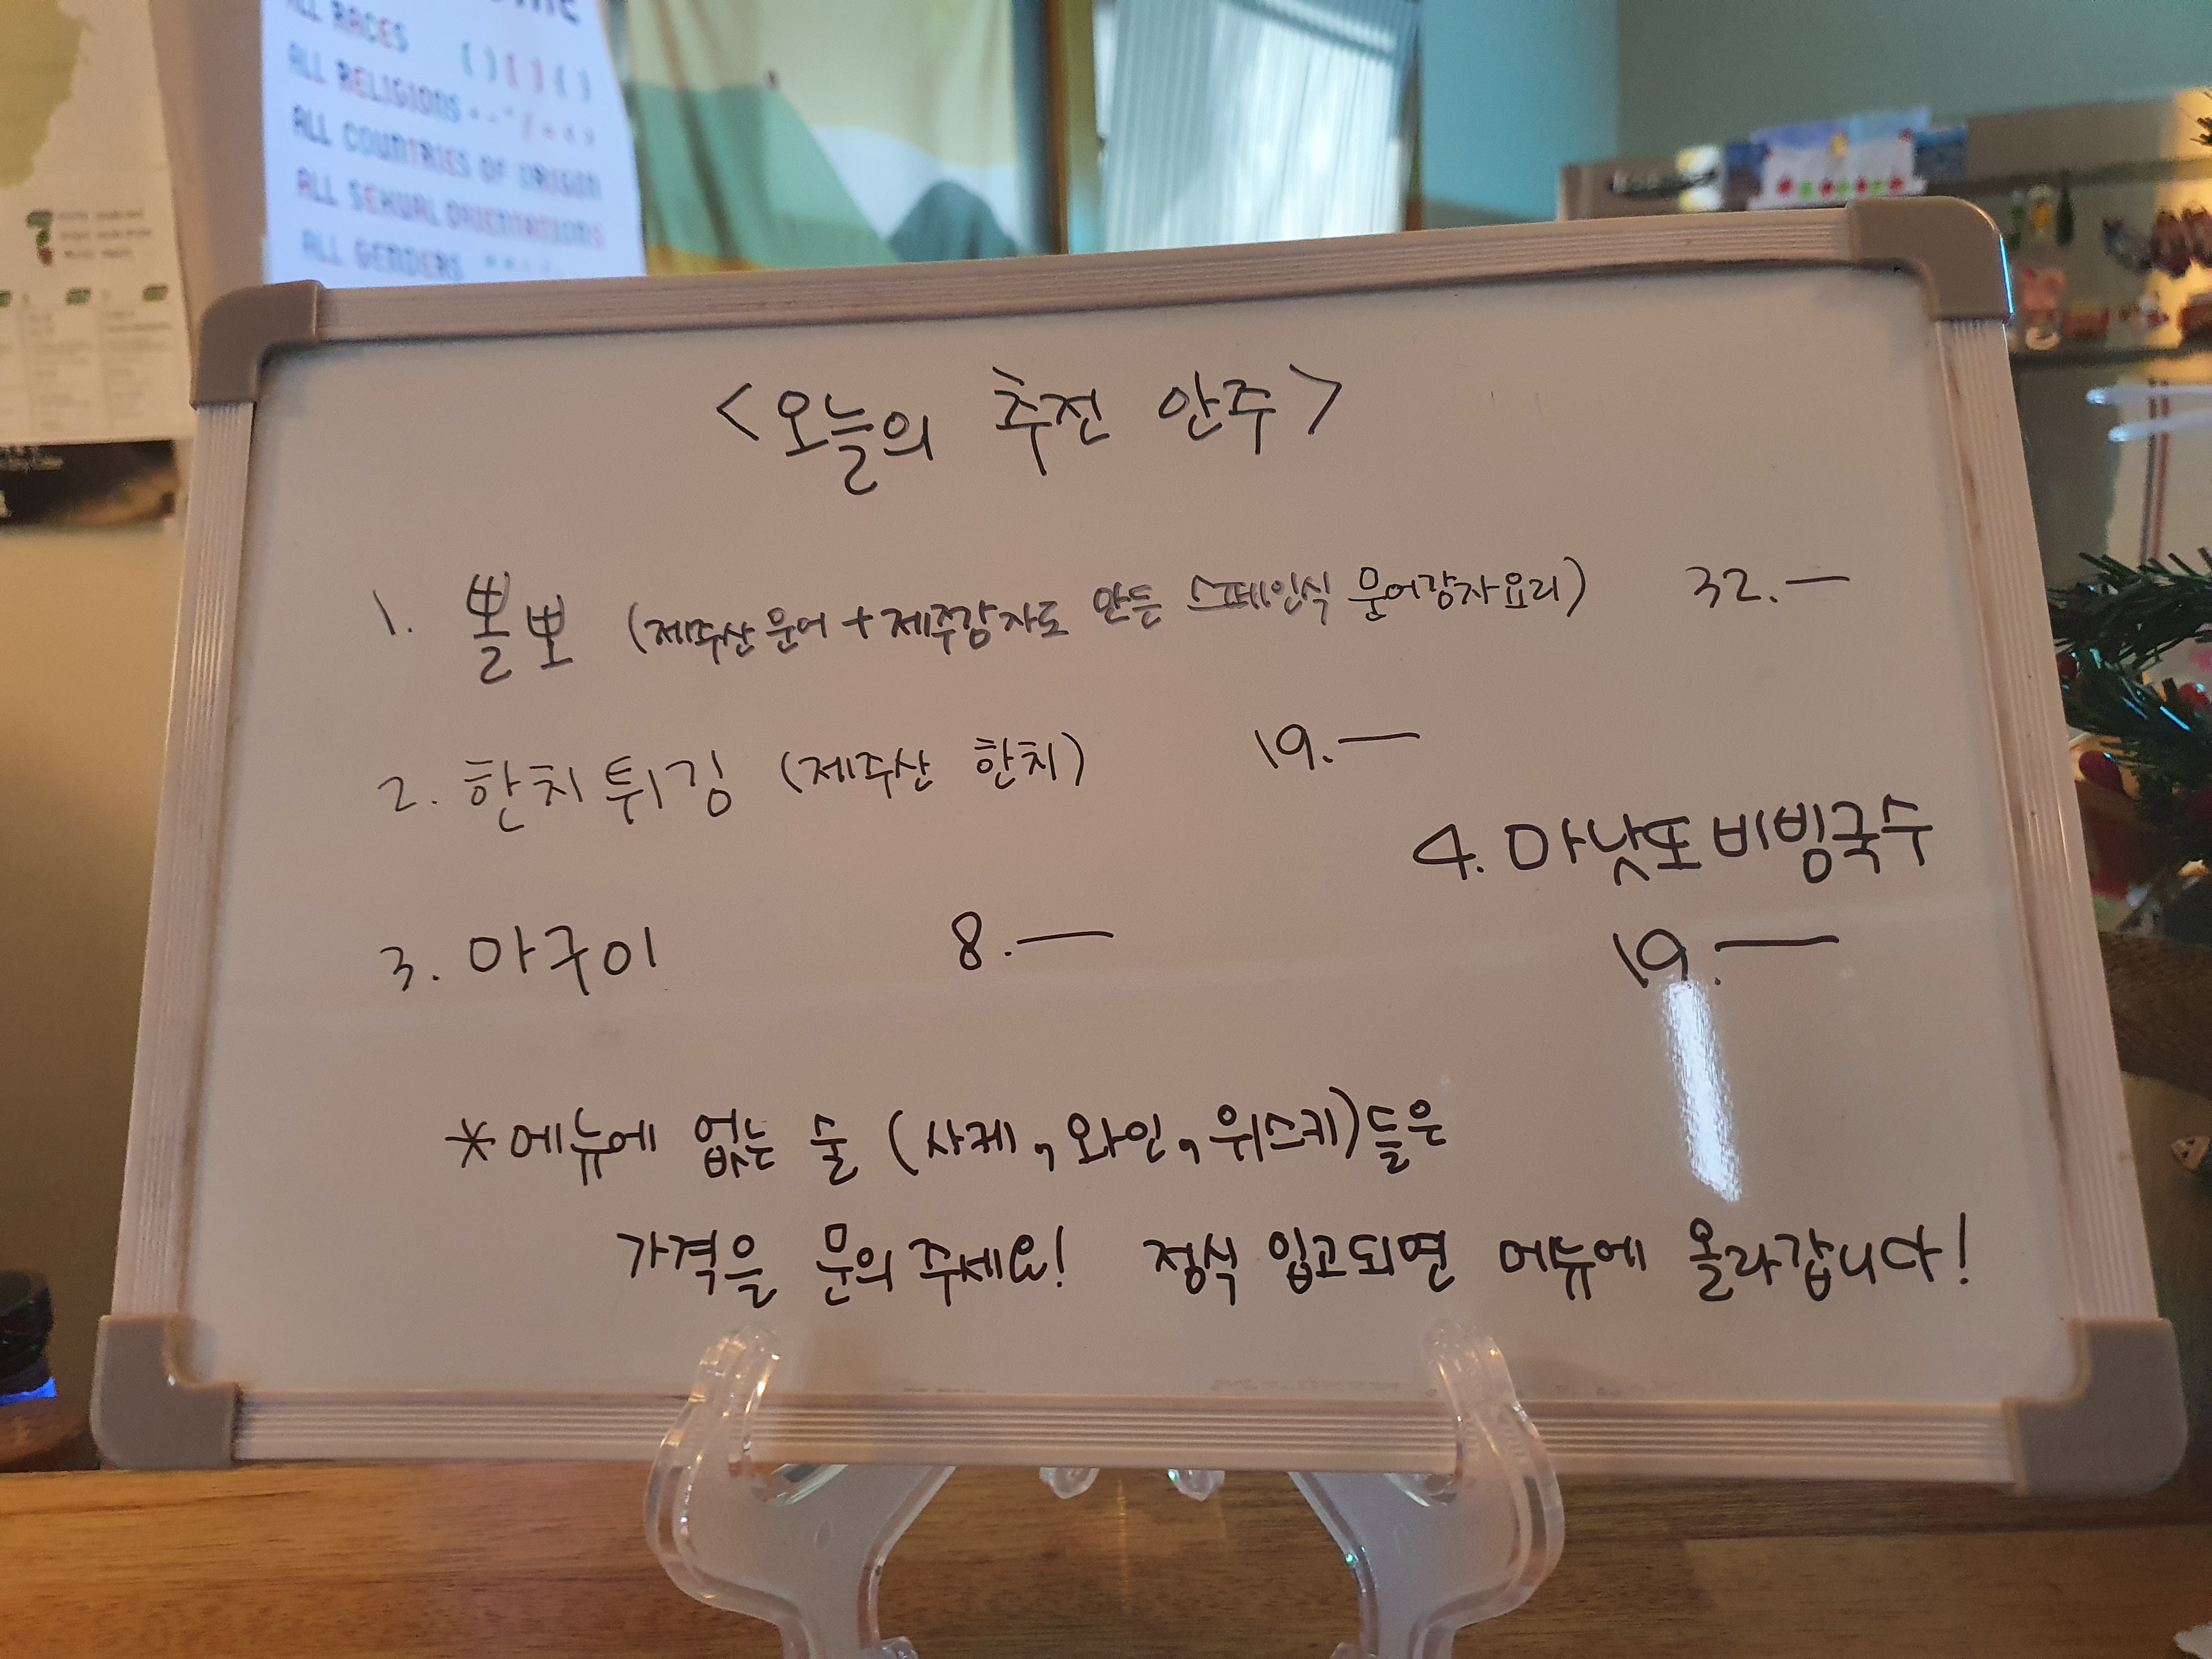 ALL RACES ( ) [ ] { }
ALL RELIGIONS
ALL COUNTRIES OF ORIGIN
ALL SEXUAL ORIENTATIONS
ALL GENDERS
<오늘의 추천 안주>
1. 뽈뽀 (제주산문어+제주감자로 만든 스페인식 문어감자요리) 32.—
2. 한치튀김 (제주산 한치) 19.—
3. 마구이 8.—
4. 마낫또비빔국수
19.—
*메뉴에 없는 술 (사케, 와인, 위스키)들은
가격을 문의주세요! 정식 입고되면 메뉴에 올라갑니다!